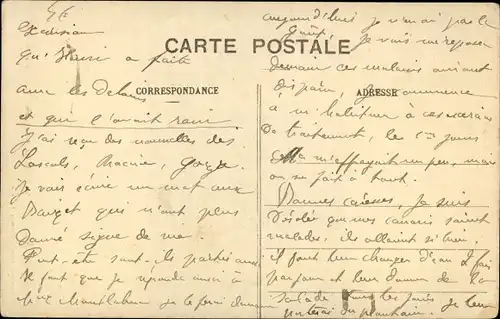 excursion
qu'Henri a faite
CARTE POSTALE
avec les Debains
CORRESPONDANCE
et qui l'avait ravi
J'ai reçu des nouvelles des
Je vais écrire un mot aux
qui n'ont plus
donné signe de vie.
Peut-être sont-ils partis aussi
Il faut que je réponde aussi à
Mme je le ferai demain
aujourd'hui je n'irai pas le
je vais me reposer
demain ces malaises auront
disparu, je commence
ADRESSE
à m'habituer à ces
de traitement, le 1er jour
m'effrayait un peu, mais
on se fait à tout.
Bonnes caresses, je suis
désolée que mes canaris soient
malades, ils allaient si bien.
il faut leur changer d'eau 2 fois
par jour et leur donner de la
salade tous les jours je leur
du plantain.